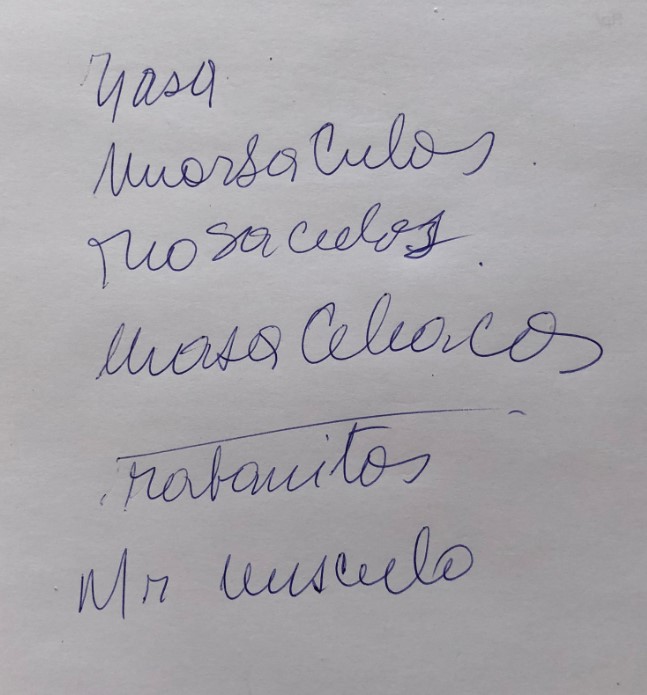 yasa
muorsa Culos
mosaculos
masa Celiacos
rabanitos
Mr musculo